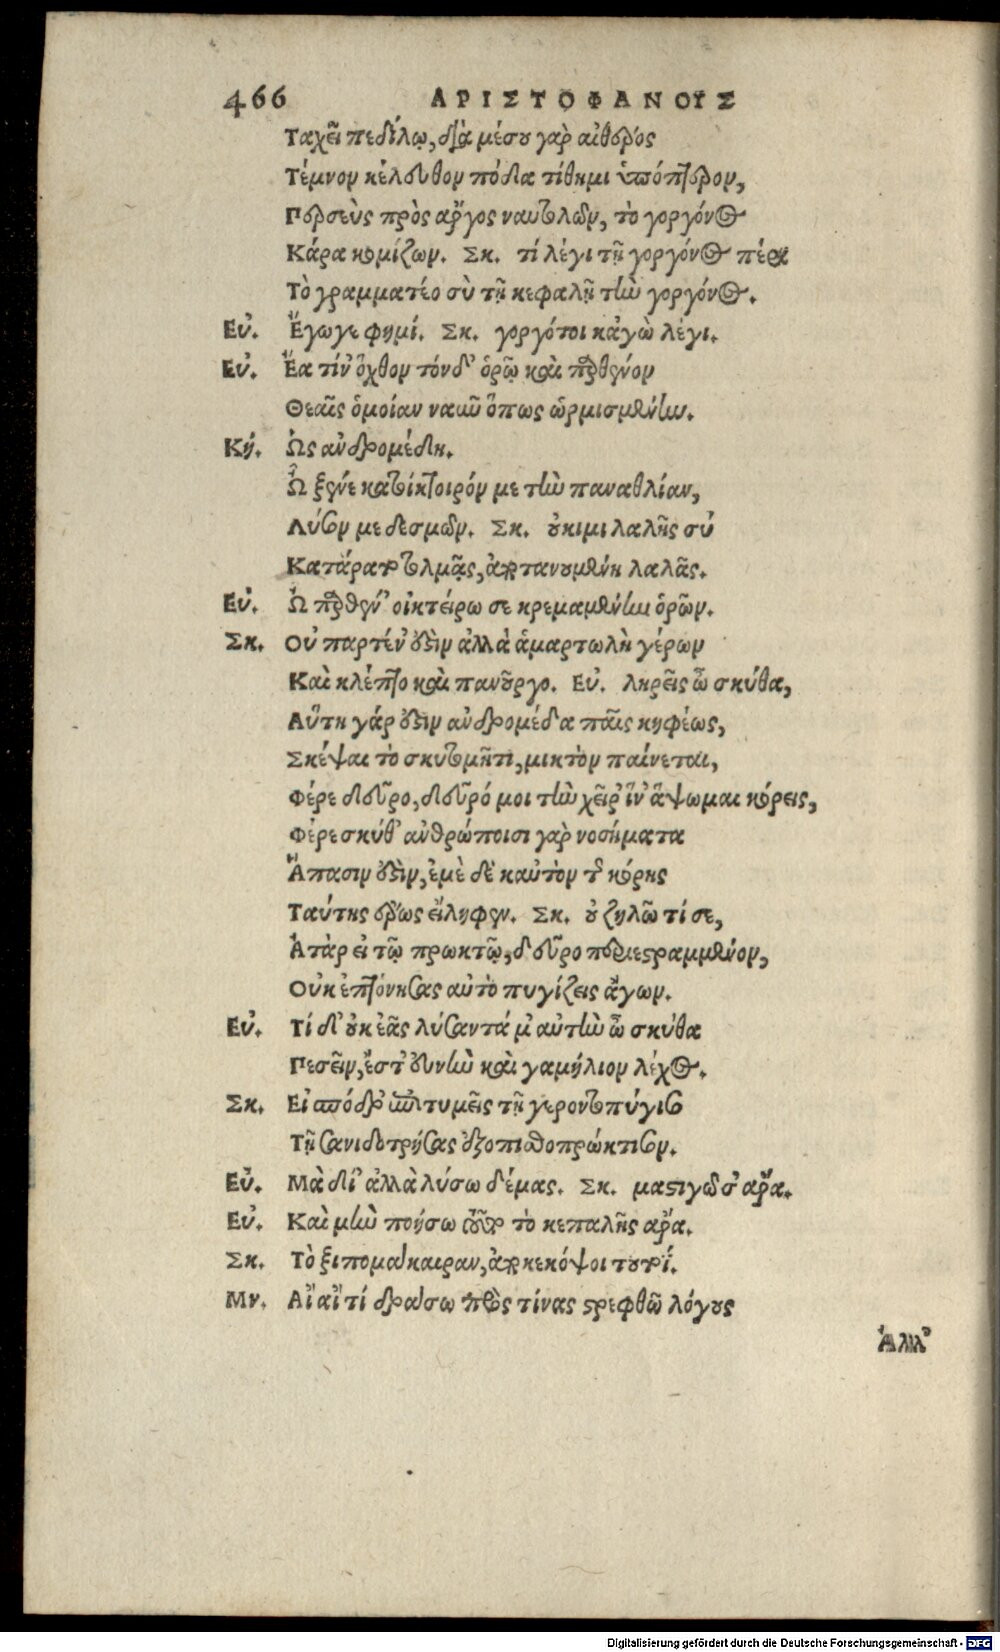 466 ΑΡΙΣΤΟΦΑΝΟΥΣ
Ταχεῖ πεδίλῳ, διὰ μέσου γὰρ αἰθέρος
Τέμνον κέλευθον πόδα τίθημι ὑπόπτερον,
Περσεὺς πρὸς ἄργος ναυστολῶν, τὸ γοργόνος
Κάρα κομίζων. Σκ. τί λέγι τῆ γοργόνος πέρι
Τὸ γραμματέο σὺ τῆ κεφαλῆ τὴν γοργόνος.
Εὐ. Ἔγωγε φημί. Σκ. γοργότοι κἀγὼ λέγι.
Εὐ. Ἔα τίν' ὄχθον τόνδ' ὁρῶ καὶ παρθένον
Θεαῖς ὁμοίαν ναῦν ὅπως ὡρμισμένην.
Κή. Ὡς ἀνδρομέδη.
Ὦ ξένε κατοίκτοιρόν με τὴν παναθλίαν,
Λῦσόν με δεσμῶν. Σκ. οὐκιμι λαλῆς σύ
Κατάρατο τολμᾷς, ἀποτανουμένη λαλᾶς.
Εὐ. Ὦ παρθέν' οἰκτείρω σε κρεμαμένην ὁρῶν.
Σκ. Οὐ παρτέν' ἐστὶν ἀλλὰ ἁμαρτωλὴ γέρων
Καὶ κλέπτο καὶ πανοῦργο. Εὐ. ληρεῖς ὦ σκύθα,
Αὕτη γάρ ἐστιν ἀνδρομέδα παῖς κηφέως,
Σκέψαι τὸ σκυτο μῆτι, μικτὸν παίνεται,
Φέρε δεῦρο, δεῦρό μοι τὴν χεῖρ' ἵν' ἅψωμαι κόρεις,
Φέρε σκύθ' ἀνθρώποισι γὰρ νοσήματα
Ἅπασιν ἐστὶν, ἐμὲ δὲ καὐτὸν τῆς κόρης
Ταύτης ἔρως εἴληφεν. Σκ. οὐ ζηλῶ τί σε,
Ἀτὰρ εἰ τῷ πρωκτῷ, δεῦρο περιεστραμμένον,
Οὐκ ἐπτόνησας αὐτὸ πυγίζεις ἄγων.
Εὐ. Τί δ' οὐκ ἐᾶς λύσαντά μ' αὐτὴν ὦ σκύθα
Πεσεῖν, ἔστ' εὐνὴν καὶ γαμήλιον λέχος.
Σκ. Εἰ σπόδρ' ἐπιτυμεῖς τῆ γεροντο πύγισο
Τῆ σανιδο τρήσας ἐξοπιστοπρώκτισον.
Εὐ. Μὰ δί' ἀλλὰ λύσω δέμας. Σκ. μαστιγῶσ' ἄρα.
Εὐ. Καὶ μὴν ποήσω τοῦτο τὸ κεπαλῆς ἄρα.
Σκ. Τὸ ξιπομάκαιραν, ἀποκεκόψοι τουτοΐ.
Μν. Αἴ αἴ τί δράσω πρὸς τίνας στρεφθῶ λόγους
Ἀλλ'
Digitalisierung gefördert durch die Deutsche Forschungsgemeinschaft - DFG